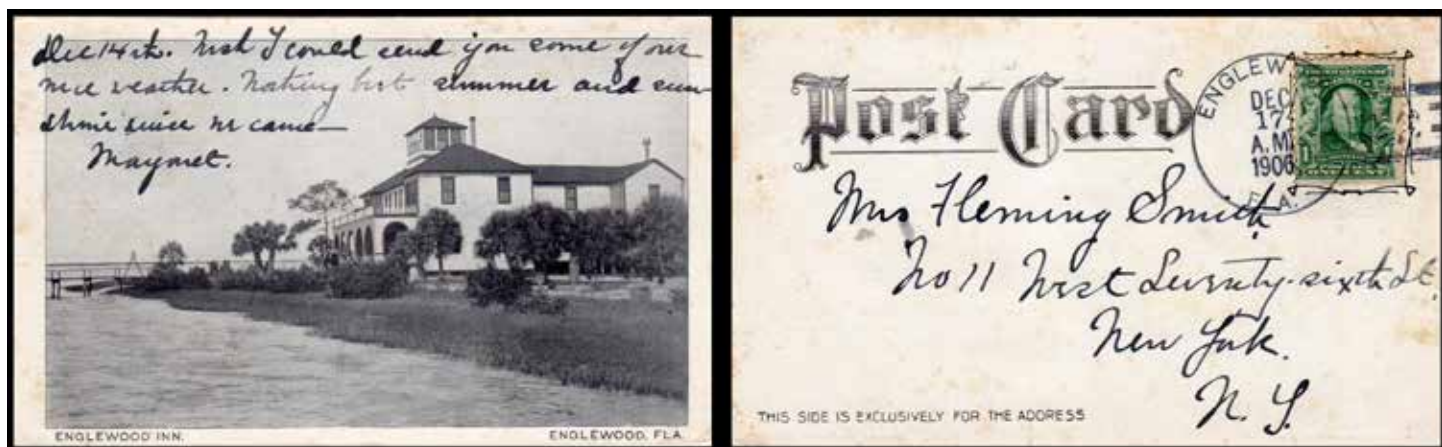 Dec 14th. Wish I could send you some of our
nice weather. Nothing but summer and sun-
shine since we came—
Margaret.
ENGLEWOOD INN.
ENGLEWOOD, FLA.
Post Card
ENGLEWO
DEC
17
A.M.
1906
FLA.
1
Mrs Fleming Smith
No 11 West Seventy-sixth St.
New York.
N.Y.
THIS SIDE IS EXCLUSIVELY FOR THE ADDRESS